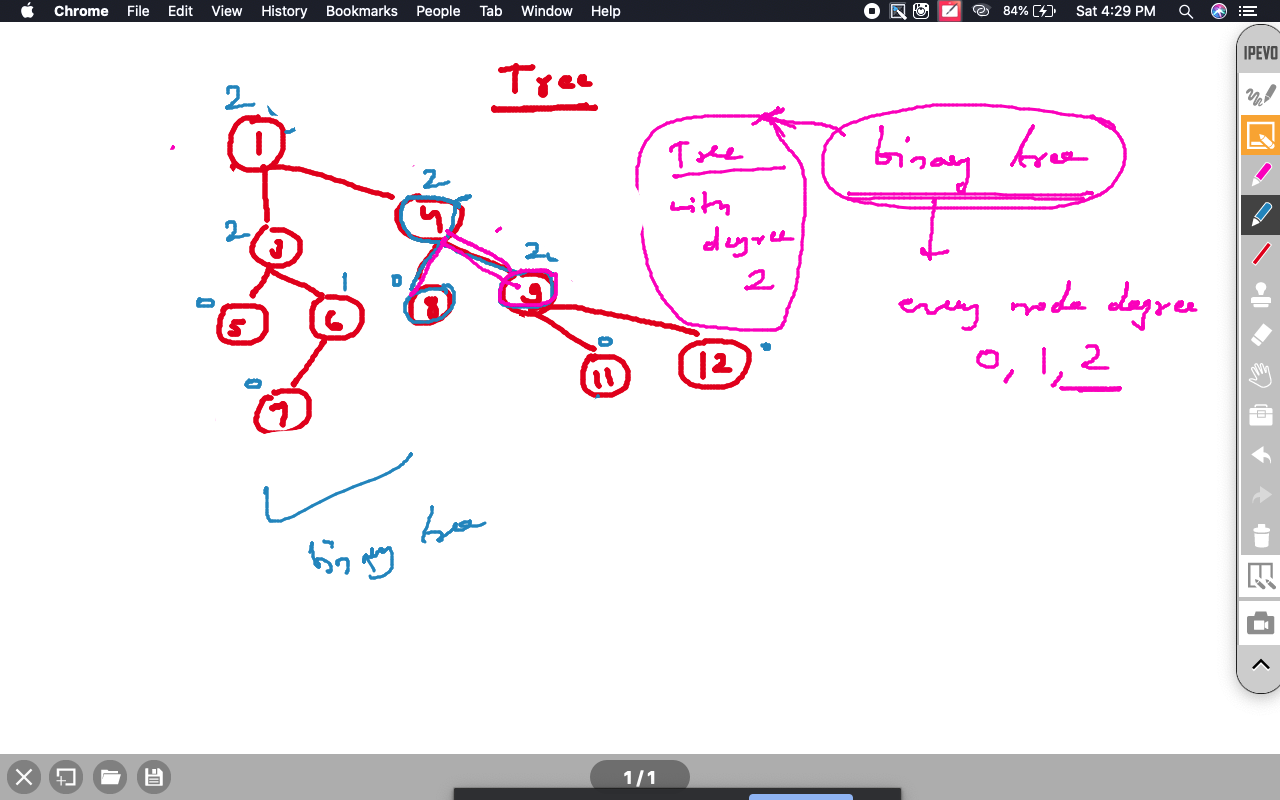 Chrome File Edit View History Bookmarks People Tab Window Help 84% Sat 4:29 PM
IPEVO
Tree
2
1
2
4
2
3
2
9
0
8
0
5
1
6
0
7
0
11
0
12
Tree
with
degree
2
binary tree
every node degree
0, 1, 2
binary tree
1/1